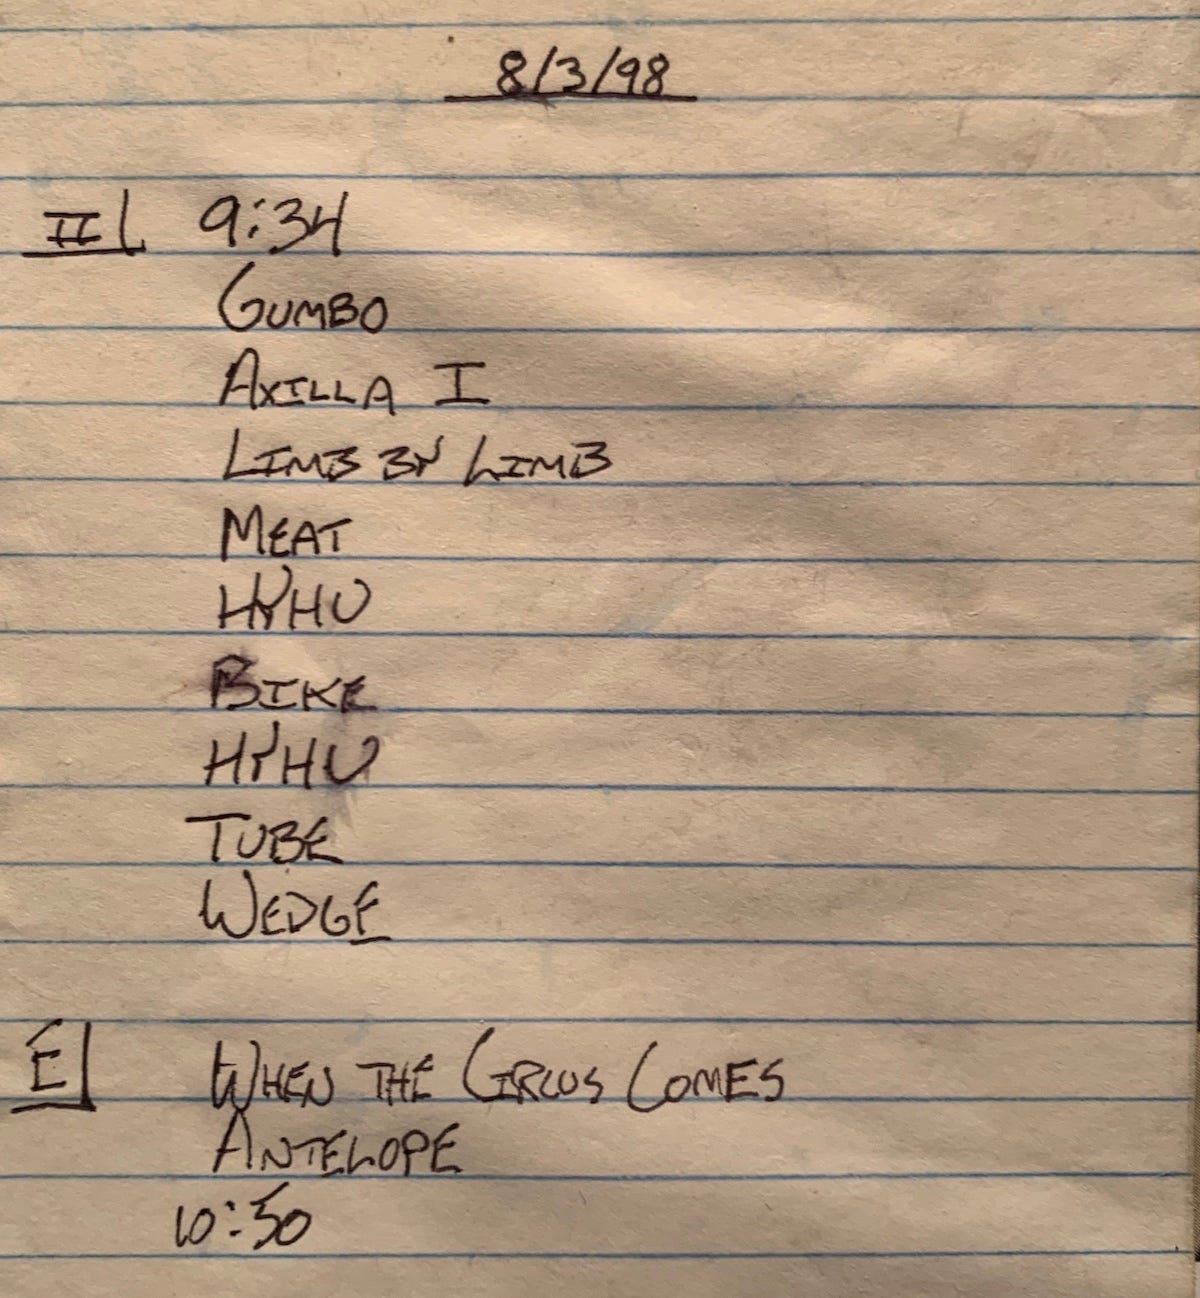 8/3/98
II 9:34
GUMBO
AXILLA I
LIMB BY LIMB
MEAT
HYHU
BIKE
HYHU
TUBE
WEDGE
E WHEN THE CIRCUS COMES
ANTELOPE
10:50